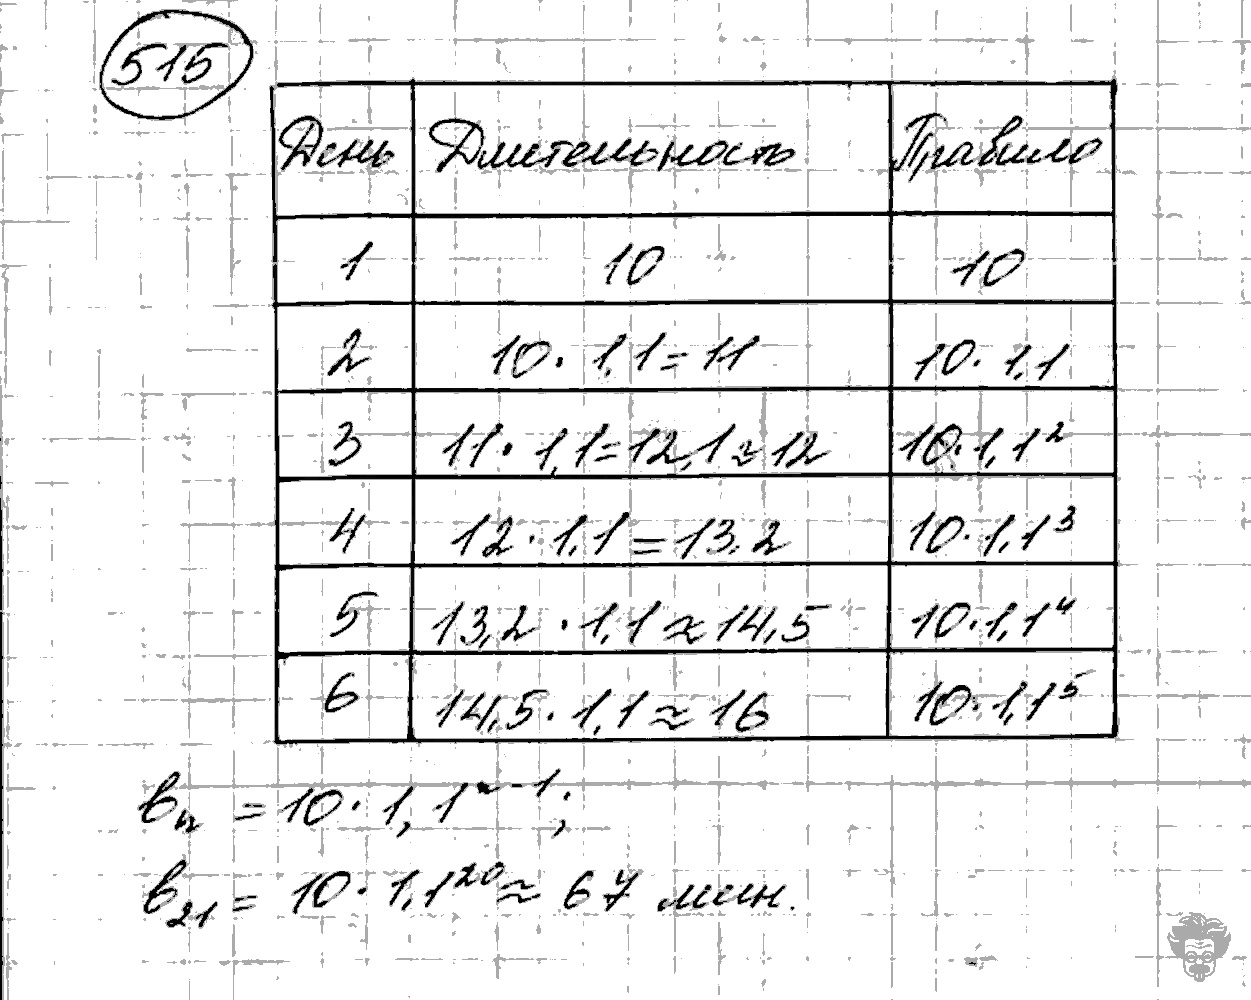 515
День Длительность Правило
1 10 10
2 10 · 1,1 = 11 10 · 1,1
3 11 · 1,1 = 12,1 ≈ 12 10 · 1,1²
4 12 · 1,1 = 13,2 10 · 1,1³
5 13,2 · 1,1 ≈ 14,5 10 · 1,1⁴
6 14,5 · 1,1 ≈ 16 10 · 1,1⁵
bₙ = 10 · 1,1ⁿ⁻¹;
b₂₁ = 10 · 1,1²⁰ ≈ 67 мин.